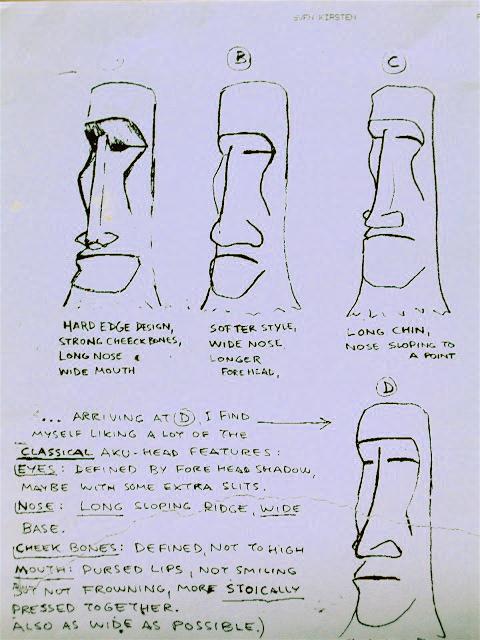 SVEN KIRSTEN
B
C
HARD EDGE DESIGN,
STRONG CHEECK BONES,
LONG NOSE &
WIDE MOUTH
SOFTER STYLE,
WIDE NOSE
LONGER
FOREHEAD,
LONG CHIN,
NOSE SLOPING TO
A POINT
D
"... ARRIVING AT D, I FIND
MYSELF LIKING A LOT OF THE
CLASSICAL AKU-HEAD FEATURES:
EYES: DEFINED BY FOREHEAD SHADOW,
MAYBE WITH SOME EXTRA SLITS.
NOSE: LONG SLOPING RIDGE, WIDE
BASE.
CHEEK BONES: DEFINED, NOT TO HIGH
MOUTH: PURSED LIPS, NOT SMILING
BUT NOT FROWNING, MORE STOICALLY
PRESSED TOGETHER.
ALSO AS WIDE AS POSSIBLE.)